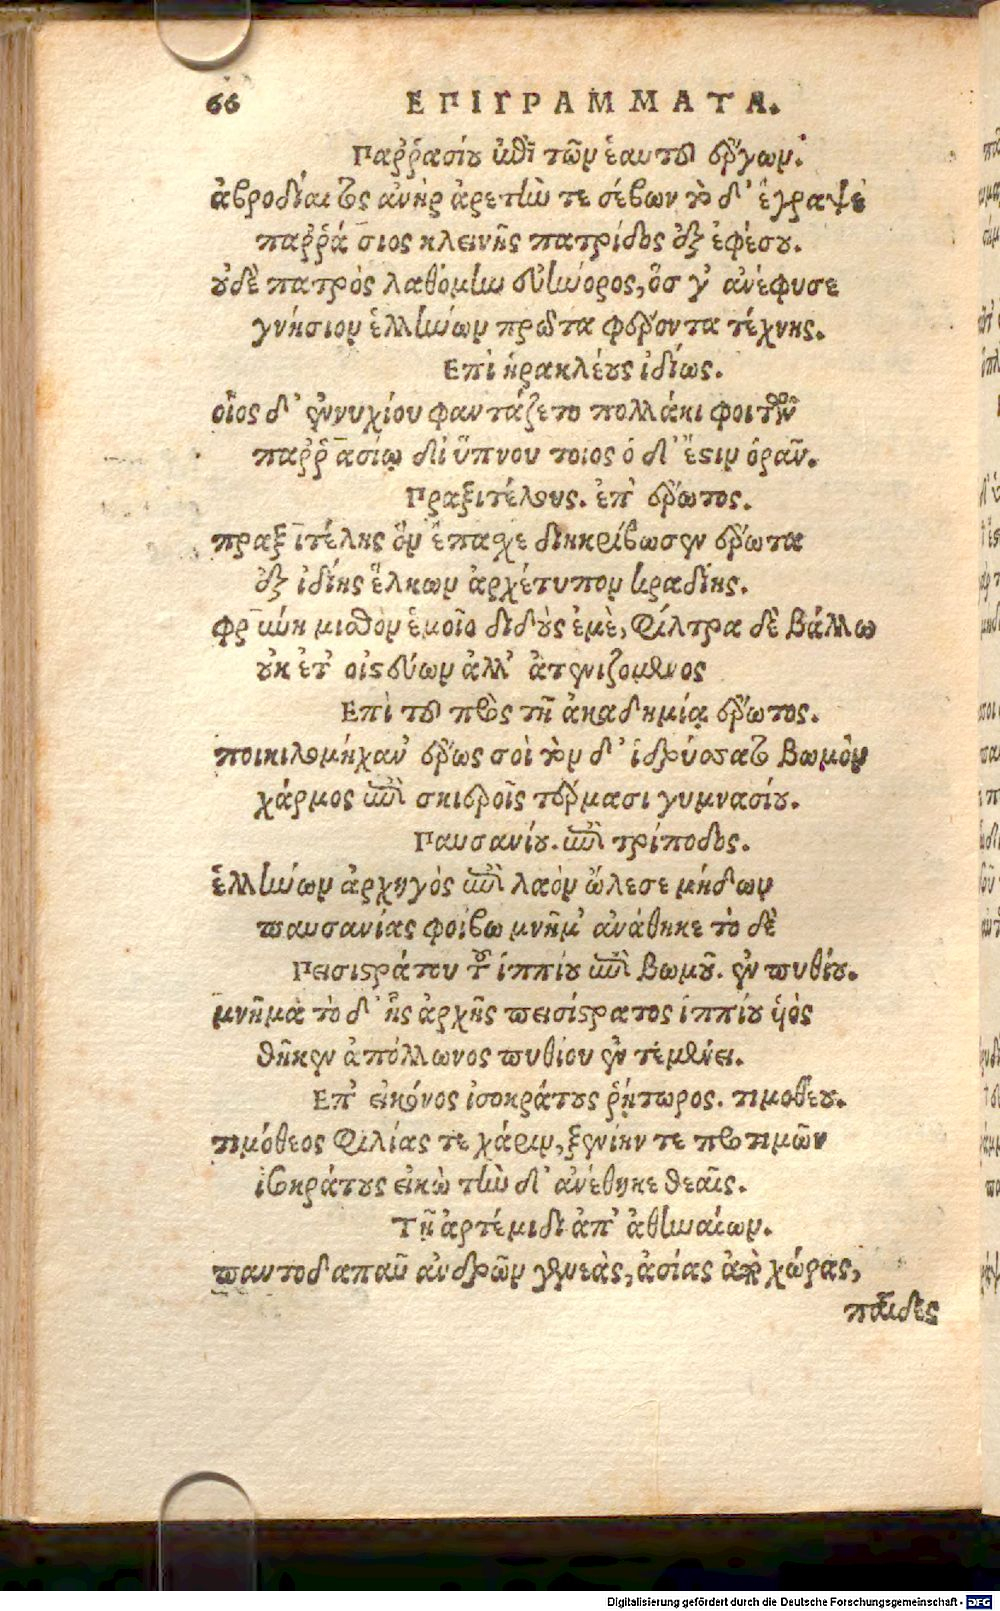 66 ΕΠΙΓΡΑΜΜΑΤΑ.
Παῤῥασίου ἐπὶ τῶν ἑαυτοῦ ἔργων.
ἁβροδίαιτος ἀνὴρ ἀρετήν τε σέβων τόδ' ἔγραψε
παῤῥάσιος κλεινῆς πατρίδος ἐξ ἐφέσου.
οὐδὲ πατρὸς λαθόμην εὐήνορος, ὅσ γ' ἀνέφυσε
γνήσιον ἑλλήνων πρῶτα φέροντα τέχνης.
Επὶ ἡρακλέους ἰδίως.
οἷος δ' ἐννυχίου φαντάζετο πολλάκι φοιτῶν
παῤῥασίῳ δι ὕπνου τοιος ὁ δ' ἔστιν ὁρᾶν.
Πραξιτέλους. ἐπ' ἔρωτος.
πραξιτέλης ὃν ἔπαχε διηκρίβωσεν ἔρωτα
ἐξ ἰδίης ἕλκων ἀρχέτυπον κραδίης.
φρύνη μισθὸν ἐμοῖο διδοὺς ἐμὲ, φίλτρα δὲ βάλλω
οὐκ ἐτ' οἰστεύων ἀλλ' ἀτενιζομενος
Επὶ τοῦ πρὸς τῇ ἀκαδημίᾳ ἔρωτος.
ποικιλομήχαν' ἔρως σοὶ τόν δ' ἱδρύσατο βωμὸν
χάρμος ἐπὶ σκιεροῖς τέρμασι γυμνασίου.
Παυσανίου. ἐπὶ τρίποδος.
ἑλλήνων ἀρχηγὸς ἐπὶ λαὸν ὤλεσε μήδων
παυσανίας φοίβω μνῆμ' ἀνάθηκε τὸ δὲ
Πεισιστράτου τοῦ ἱππίου ἐπὶ βωμοῦ. ἐν πυθίου.
μνῆμα τὸ δ' ἧς ἀρχῆς πεισίστρατος ἱππίου ὑὸς
θῆκεν ἀπόλλωνος πυθίου ἐν τεμένει.
Επ' εἰκόνος ἰσοκράτους ῥήτωρος. τιμοθέου.
τιμόθεος φιλίας τε χάριν, ξενίην τε προτιμῶν
ἰσοκράτους εἰκὼ τὴν δ' ἀνέθηκε θεαῖς.
Τῇ ἀρτέμιδι ἀπ' ἀθηναίων.
παντοδαπαῦ ἀνδρῶν γενεὰς, ἀσίας ἀπὸ χώρας,
παῖδες
Digitalisierung gefördert durch die Deutsche Forschungsgemeinschaft - DFG